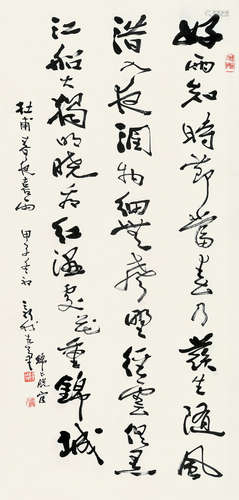 好雨知時節當春乃發生隨風
潛入夜潤物細無聲野徑雲俱黑
江船火獨明曉看紅濕處花重錦城
杜甫春夜喜雨 甲子